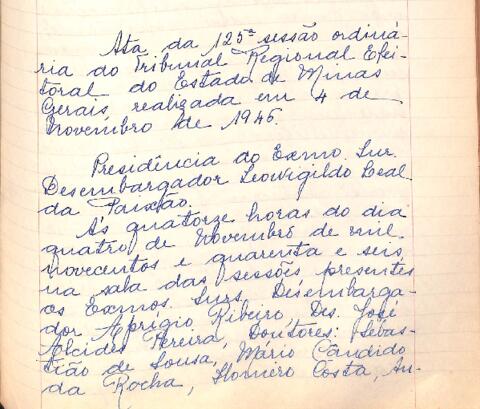 Ata da 125ª sessão ordiná-
ria do Tribunal Regional Elei-
toral do Estado de Minas
Gerais, realizada em 4 de
Novembro de 1946.
Presidência do Exmo. Snr.
Desembargador Leovigildo Leal
da Paixão.
Ás quatorze horas do dia
quatro de Novembro de mil
novecentos e quarenta e seis,
na sala das sessões, presentes
os Exmos. Snrs. Desembarga-
dor Aprígio Ribeiro, Des. José
Alcides Pereira, Doutores: Sebas-
tião de Sousa, Mário Cândido
da Rocha, Homero Costa, Au-